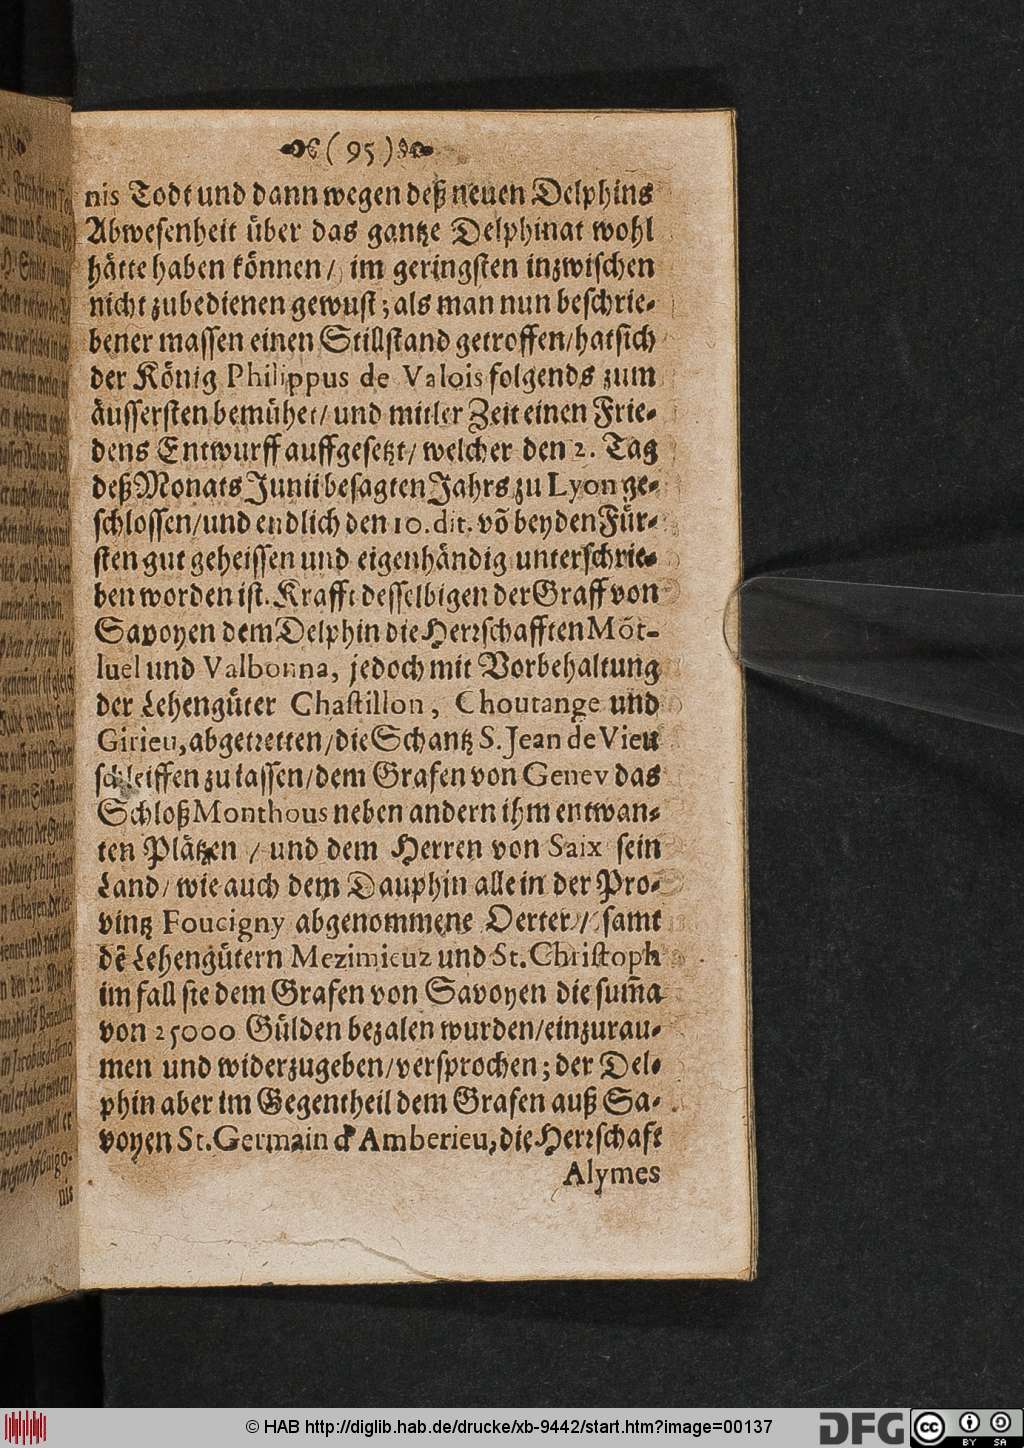 (95)
nis Todt und dann wegen deß neuen Delphins
Abwesenheit über das gantze Delphinat wohl
hätte haben können/ im geringsten inzwischen
nicht zubedienen gewust; als man nun beschrie-
bener massen einen Stillstand getroffen/hat sich
der König Philippus de Valois folgends zum
äussersten bemühet/ und mitler Zeit einen Frie-
dens Entwurff auffgesetzt/ welcher den 2. Tag
deß Monats Junii besagten Jahrs zu Lyon ge-
schlossen/und endlich den 10. dit. võ beyden Für-
sten gut geheissen und eigenhändig unterschrie-
ben worden ist. Krafft desselbigen der Graff von
Savoyen dem Delphin die Herrschafften Mõt-
luel und Valbonna, jedoch mit Vorbehaltung
der Lehengüter Chastillon, Choutange und
Girieu, abgetretten/die Schantz S. Jean de Vieu
schleiffen zu lassen/dem Grafen von Genev das
Schloß Monthous neben andern ihm entwan-
ten Plätzen / und dem Herren von Saix sein
Land/ wie auch dem Dauphin alle in der Pro-
vintz Foucigny abgenommene Oerter/ samt
dẽ Lehengütern Mezimieuz und St. Christoph
im fall sie dem Grafen von Savoyen die sum̃a
von 25000 Gülden bezalen wurden/einzurau-
men und widerzugeben/versprochen; der Del-
phin aber im Gegentheil dem Grafen auß Sa-
voyen St. Germain & Amberieu, die Herrschaft
Alymes
© HAB http://diglib.hab.de/drucke/xb-9442/start.htm?image=00137
DFG
cc BY SA